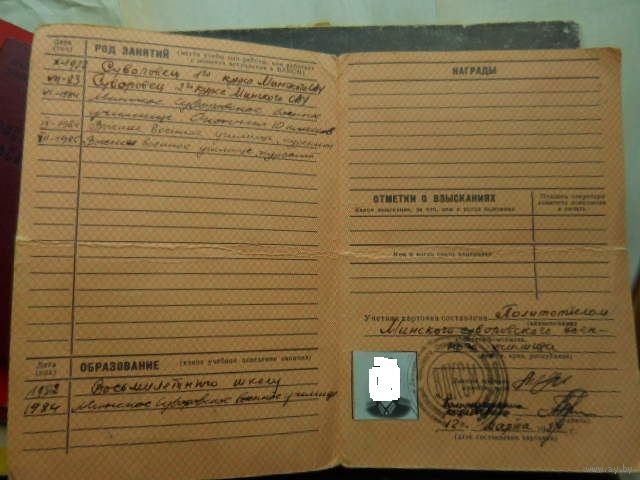 Дата (м-ц)
РОД ЗАНЯТИЙ (место учебы или работы, кем работает
с момента вступления в ВЛКСМ)
X-1982 Суворовец 1го курса Минского СВУ
VII-83 Суворовец 2го курса Минского СВУ
VI-1984 Минское суворовское военное
училище Окончил 10 классов
IX-1984 Высшее военное училище, курсант
VII-1985 Высшее военное училище курсант
Дата (м-ц)
ОБРАЗОВАНИЕ (какое учебное заведение окончил)
1982 Восьмилетнюю школу
1984 Минское суворовское военное училище
НАГРАДЫ
ОТМЕТКИ О ВЗЫСКАНИЯХ
Какое взыскание, за что, кем и когда наложено
Подпись секретаря
комитета комсомола
и печать
Кем и когда снято взыскание
Учетная карточка составлена Политотделом
(наименование
Минского суворовского воен-
ного училища
края, республики)
12 марта 198
г.
(дата составления карточки)
www.ay.by